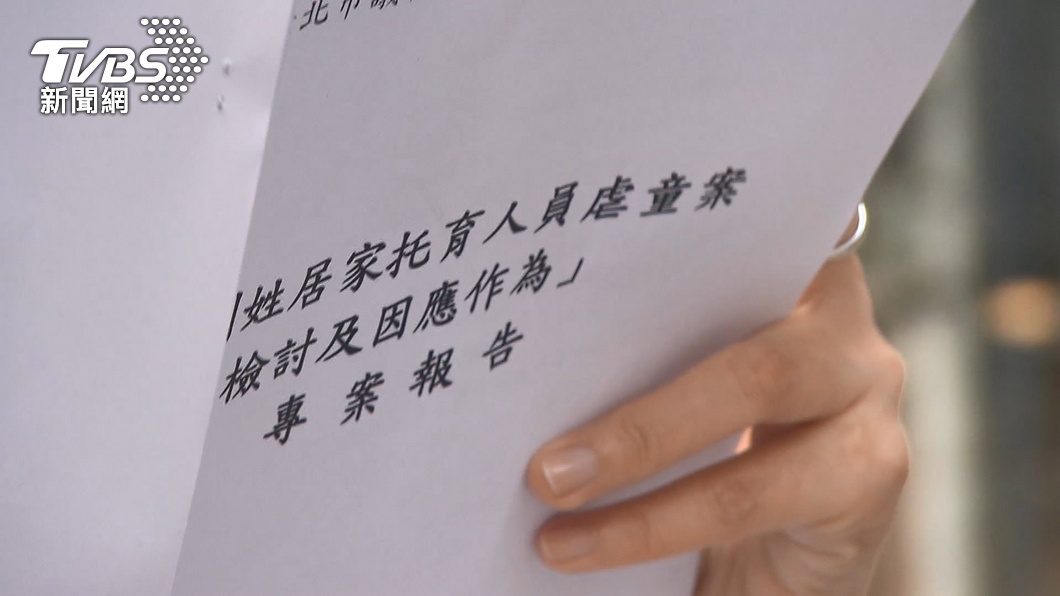 TVBS
新聞網
北市議
姓居家托育人員虐童案
檢討及因應作為」
專案報告